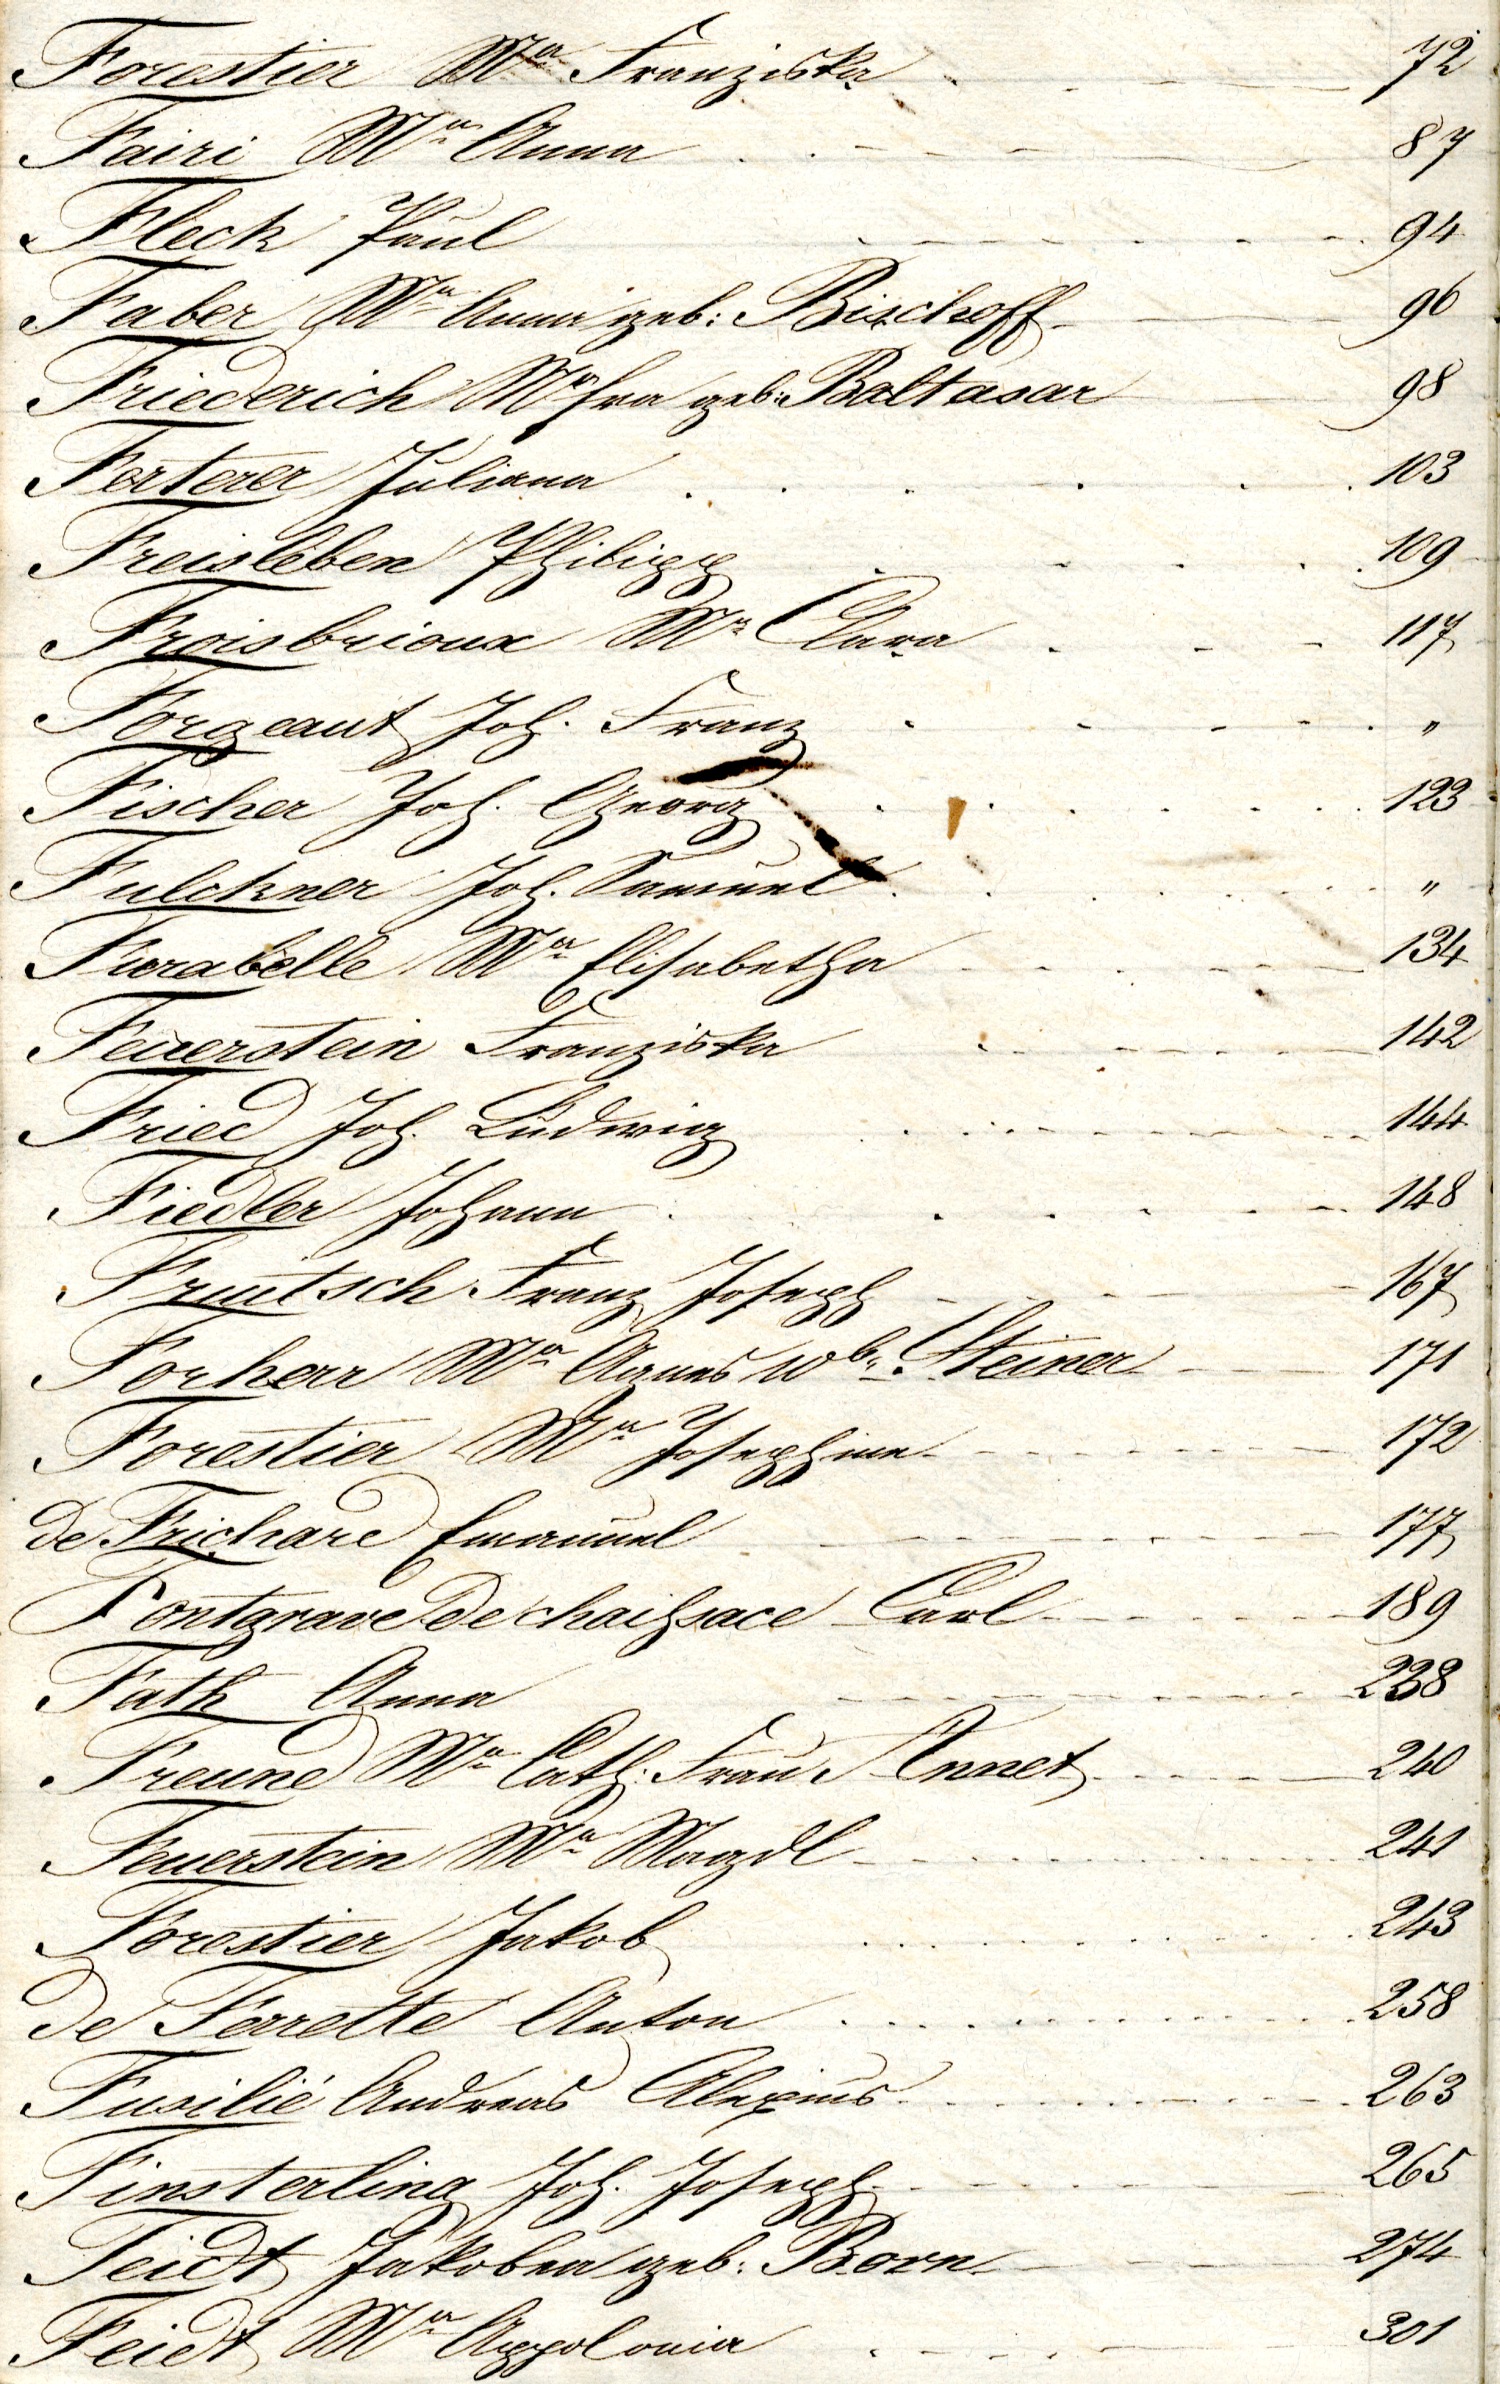 Forestier Ma Franziska 72
Fairi Ma Anna 87
Fleck Paul 94
Faber Ma Anna geb: Bischoff 96
Friederich Ma Eva geb: Baltasar 98
Ferterer Juliana 103
Freisleben Philipp 109
Froisbrioux Ma Clara 117
Forgeaut Joh. Franz "
Fischer Joh. Georg 123
Fulckner Joh. Samuel "
Furabelle Ma Elisabetha 134
Feuerstein Franziska 142
Fried Joh. Ludwig 144
Fiedler Johann 148
Fruitsch Franz Joseph 167
Forherr Ma Agnes Wb. Steiner 171
Forestier Ma Josephine 172
de Frichare Emanuel 177
Fontgrave de chaißsace Carl 189
Fath Anna 238
Freund Ma Cath: Frau Annet 240
Feuerstein Ma Magdl 241
Forestier Jakob 243
de Ferrette Anton 258
Fusilié Andreas Alexius 263
Finsterling Joh. Joseph 265
Feidt Jakobea geb: Born 274
Feidt Ma Appolonia 301